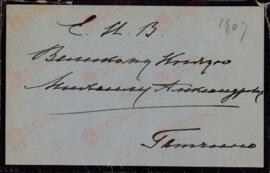 Е. И. В.
1907
Великому Князю
Михаилу Александровичу
Гатчино